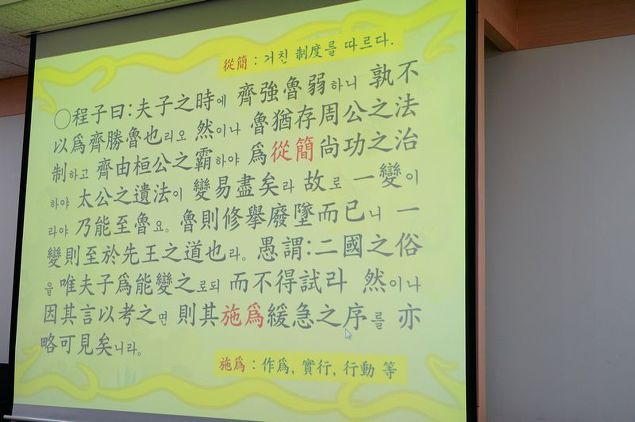 從簡 : 거친 制度를 따르다.
○程子曰:夫子之時에 齊強魯弱하니 孰不
以爲齊勝魯也리오 然이나 魯猶存周公之法
制하고 齊由桓公之霸하야 爲從簡尙功之治
하야 太公之遺法이 變易盡矣라 故로 一變이
라야 乃能至魯요。魯則修擧廢墜而已니 一
變則至於先王之道也라。愚謂:二國之俗
을 唯夫子爲能變之로되 而不得試라 然이나
因其言以考之면 則其施爲緩急之序를 亦
略可見矣니라。
施爲 : 作爲, 實行, 行動 等